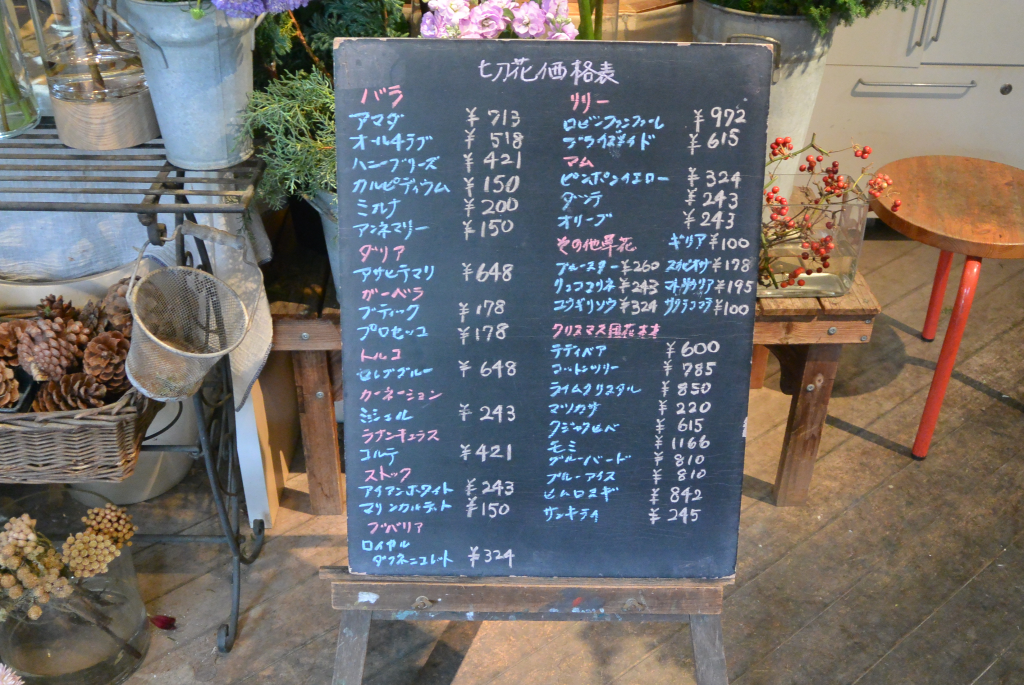 切花価格表
バラ
アマダ ¥713
オール4ラブ ¥518
ハニーブリーズ ¥421
カルピディウム ¥150
ミルナ ¥200
アンネマリー ¥150
ダリア
アサヒテマリ ¥648
ガーベラ
ブティック ¥178
プロセッコ ¥178
トルコ
セレブブルー ¥648
カーネーション
ミシェル ¥243
ラナンキュラス
コルテ ¥421
ストック
アイアンホワイト ¥243
マリンカルテット ¥150
ブバリア
ロイヤル
ダフネ ¥324
リリー
ロビンファンファーレ ¥972
プライズメイド ¥615
マム
ピンポンイエロー ¥324
ダンテ ¥243
オリーブ ¥243
その他草花 ギリア ¥100
ブルースター ¥260 スカビオサ ¥178
リュウココリネ ¥243 ¥195
ユウギリソウ ¥324 ¥100
クリスマス用花木
ラティバア ¥600
コットンツリー ¥785
ライムクリスタル ¥850
マツカサ ¥220
クジャクヒバ ¥615
モミ ¥1166
ブルーバード ¥810
ブルーアイス ¥810
ヒムロスギ ¥842
サンキライ ¥245